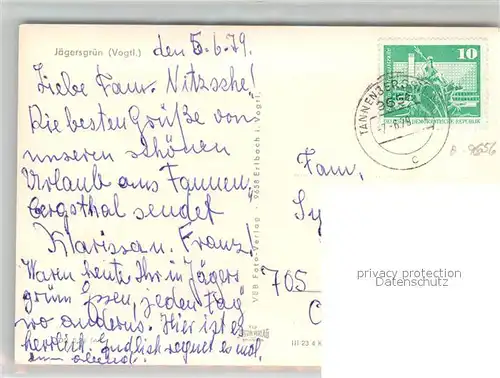 Jägersgrün (Vogtl.)
den 5.6.79.
Liebe Fam. Nitzsche!
Die besten Grüße von
unseren schönen
Urlaub aus Tannen-
bergsthal sendet
Klarissa u. Franz!
Waren heute Ihr in Jägers
grün Essen, jeden Tag
wo anders. Hier ist es
herrlich. Endlich regnet es mal
VEB Foto-Verlag · 9658 Erlbach i. Vogtl.
III-23 4
10
DEUTSCHE DEMOKRATISCHE REPUBLIK
TANNENBERGS
-7.-6.79
c
Fam.
Sy
705
privacy protection
Datenschutz